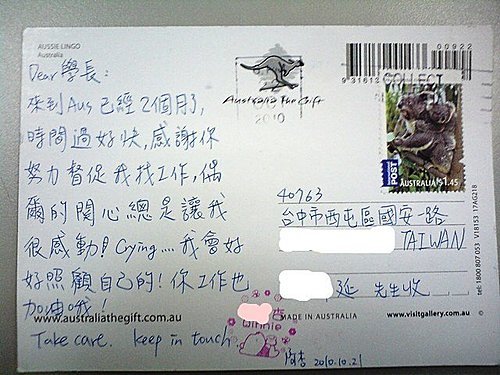 AUSSIE LINGO
Australia
Dear 學長:
來到Aus已經2個月了,
時間過好快,感謝你
努力督促我找工作,偶
爾的關心總是讓我
很感動!Crying....我會好
好照顧自己的!你工作也
加油哦!
www.australiathegift.com.au
Take care. keep in touch
Winnie
2010.10.21
Australia The Gift
2010
00922
9 31612
COLLECT
INTERNATIONAL POST
AUSTRALIA $1.45
40763
台中市西屯區國安一路
TAIWAN
延 先生收
MADE IN AUSTRALIA
www.visitgallery.com.au
tel: 1800 807 053 YVB153 17AG218